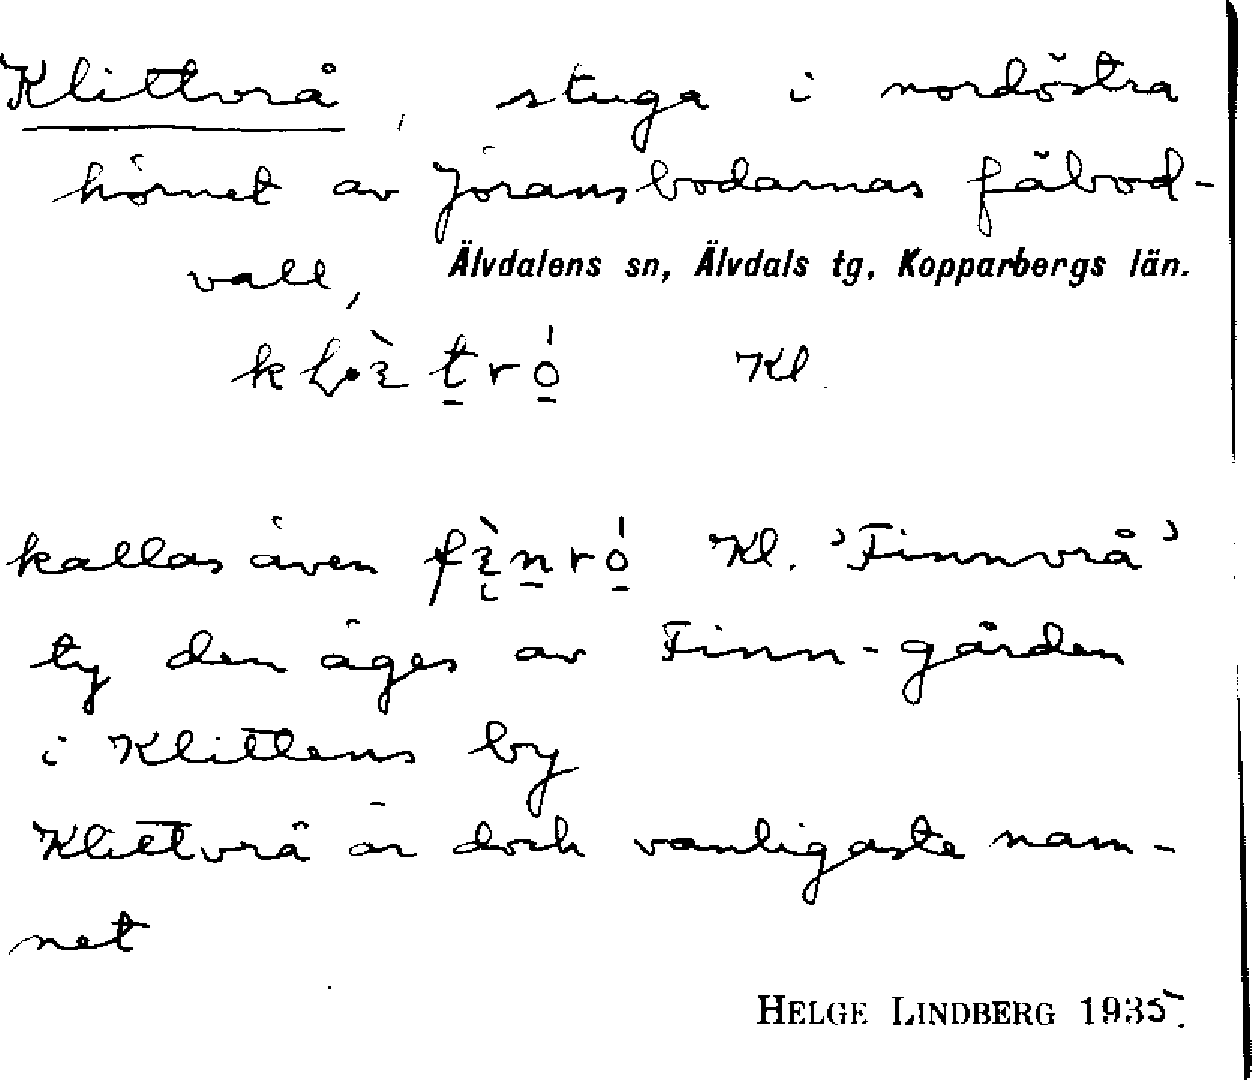 Klittvrå, stuga i nordöstra
hörnet av Jöransbodarnas fäbod-
vall, Älvdalens sn, Älvdals tg, Kopparbergs län.
Kl.
kallas även Kl. 'Finnvrå'
ty den äges av Finn-gården
i Klittens by
Klittvrå är dock vanligaste nam-
net
HELGE LINDBERG 1935.